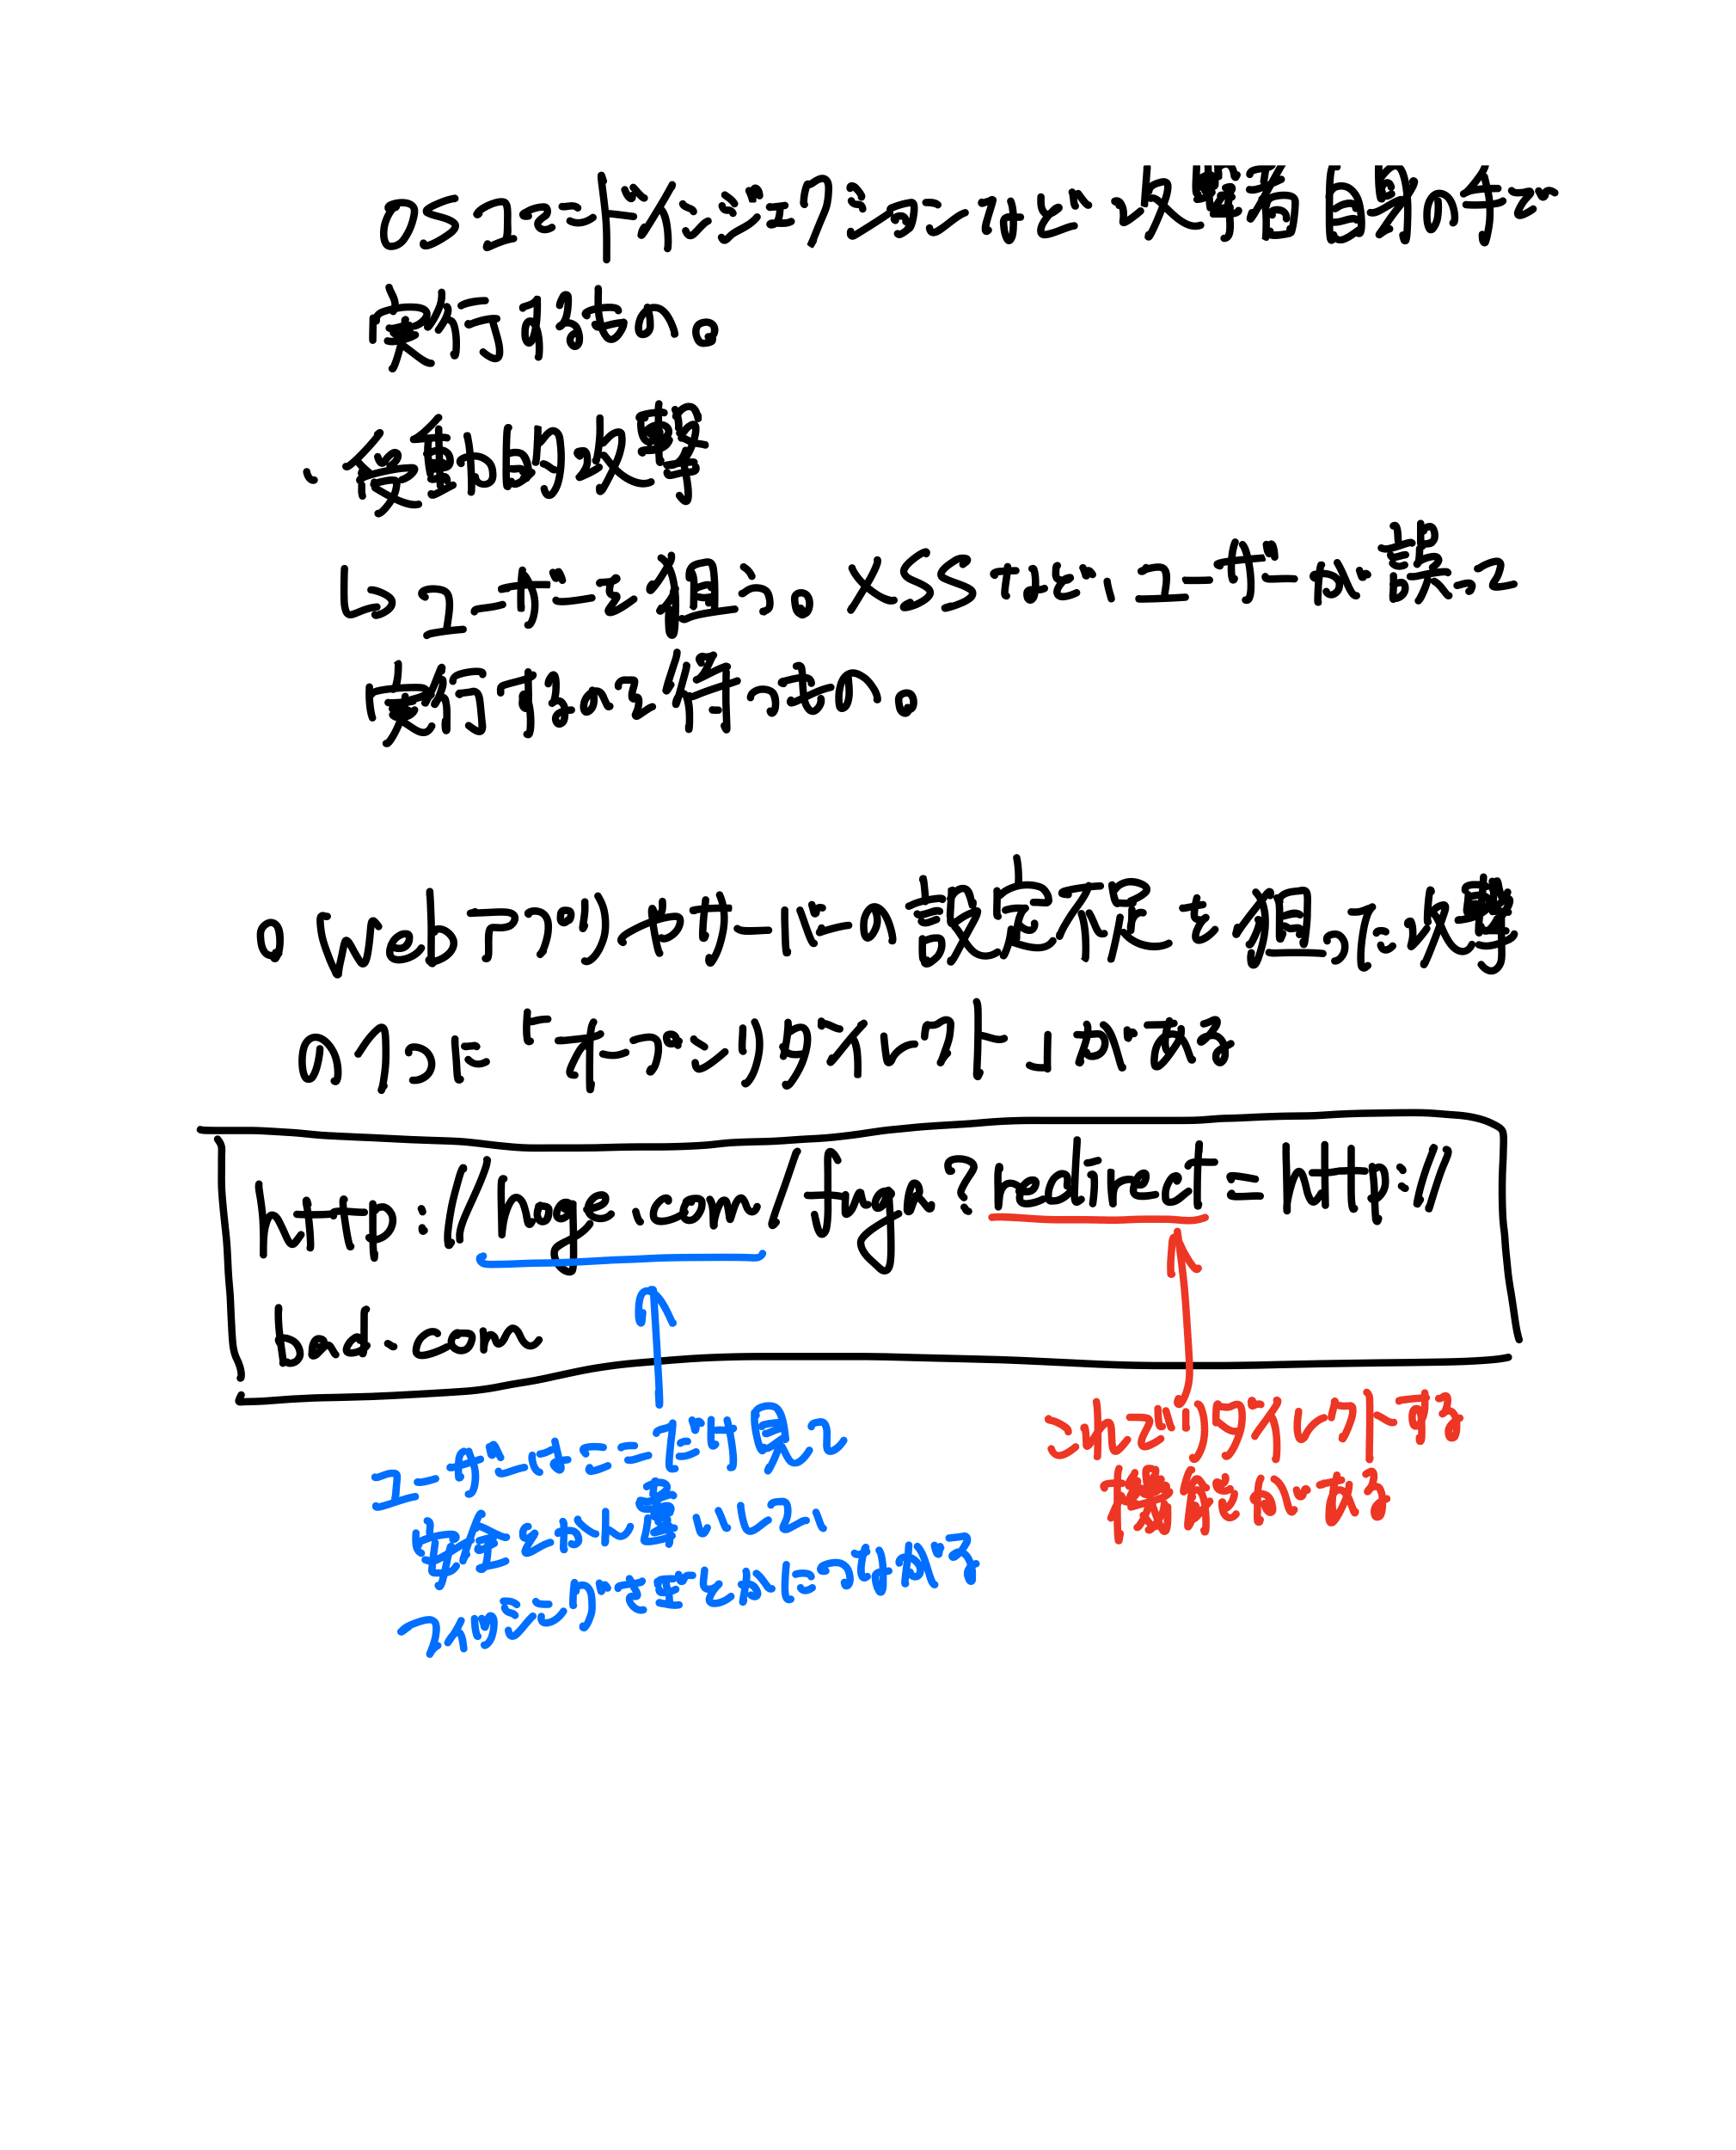 OSコマンドインジェクションなど、攻撃者自身の手で
実行するもの。
・受動的攻撃
↳ユーザーを狙う。XSSなど、ユーザーが誤って
実行するのを待つもの。
○Webアプリやサーバーの設定不足を狙った攻撃
の1つに「オープンリダイレクト」がある
http://hoge.com/fuga?redirect=http://
bad.com
ユーザーはここだけ見て
安全なURLと違いして、
フィッシングサイトとかにつながる
これでリダイレクトする
機能とかである